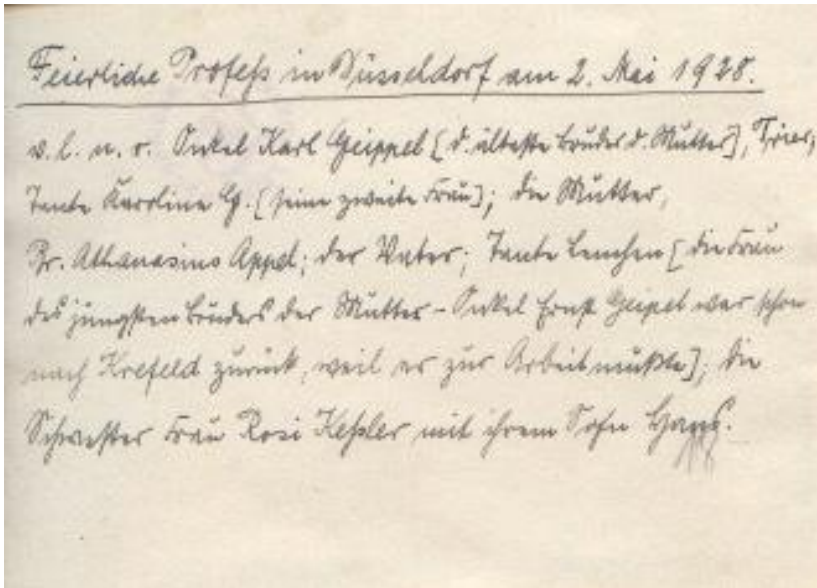 Feierliche Profeß in Düsseldorf am 2. Mai 1928.
v. l. n. r. Onkel Karl Geippel [d. älteste Bruder d. Mutter], Trier;
Tante Karoline G. [seine zweite Frau]; die Mutter,
Fr. Athanasius Appel; der Vater; Tante Lenchen [die Frau
des jüngsten Bruders der Mutter - Onkel Ernst Geipel war schon
nach Krefeld zurück, weil er zur Arbeit mußte]; die
Schwester Frau Rosi Keßler mit ihrem Sohn Hans.